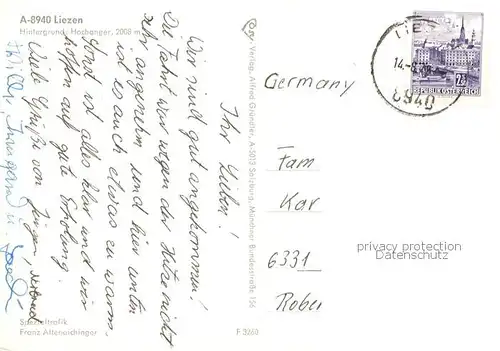 A-8940 Liezen
Hintergrund: Hochanger, 2008 m
Ihr Lieben!
Wir sind gut angekommen!
Die Fahrt war wegen der Hitze nicht
sehr angenehm und hier unten
ist es auch etwas zu warm.
Sonst ist alles klar und wir
hoffen auf gute Erholung.
Viele Grüße von Jürgen,
Spezialtrafik
Franz Altenaichinger
F 3260
Verlag Alfred Gründler, A-5013 Salzburg, Münchner Bundesstraße 156
LIEZEN
14.-8.
8940
2.50
REPUBLIK ÖSTERREICH
Germany
Fam
Kar
6331
Rober
privacy protection
Datenschutz